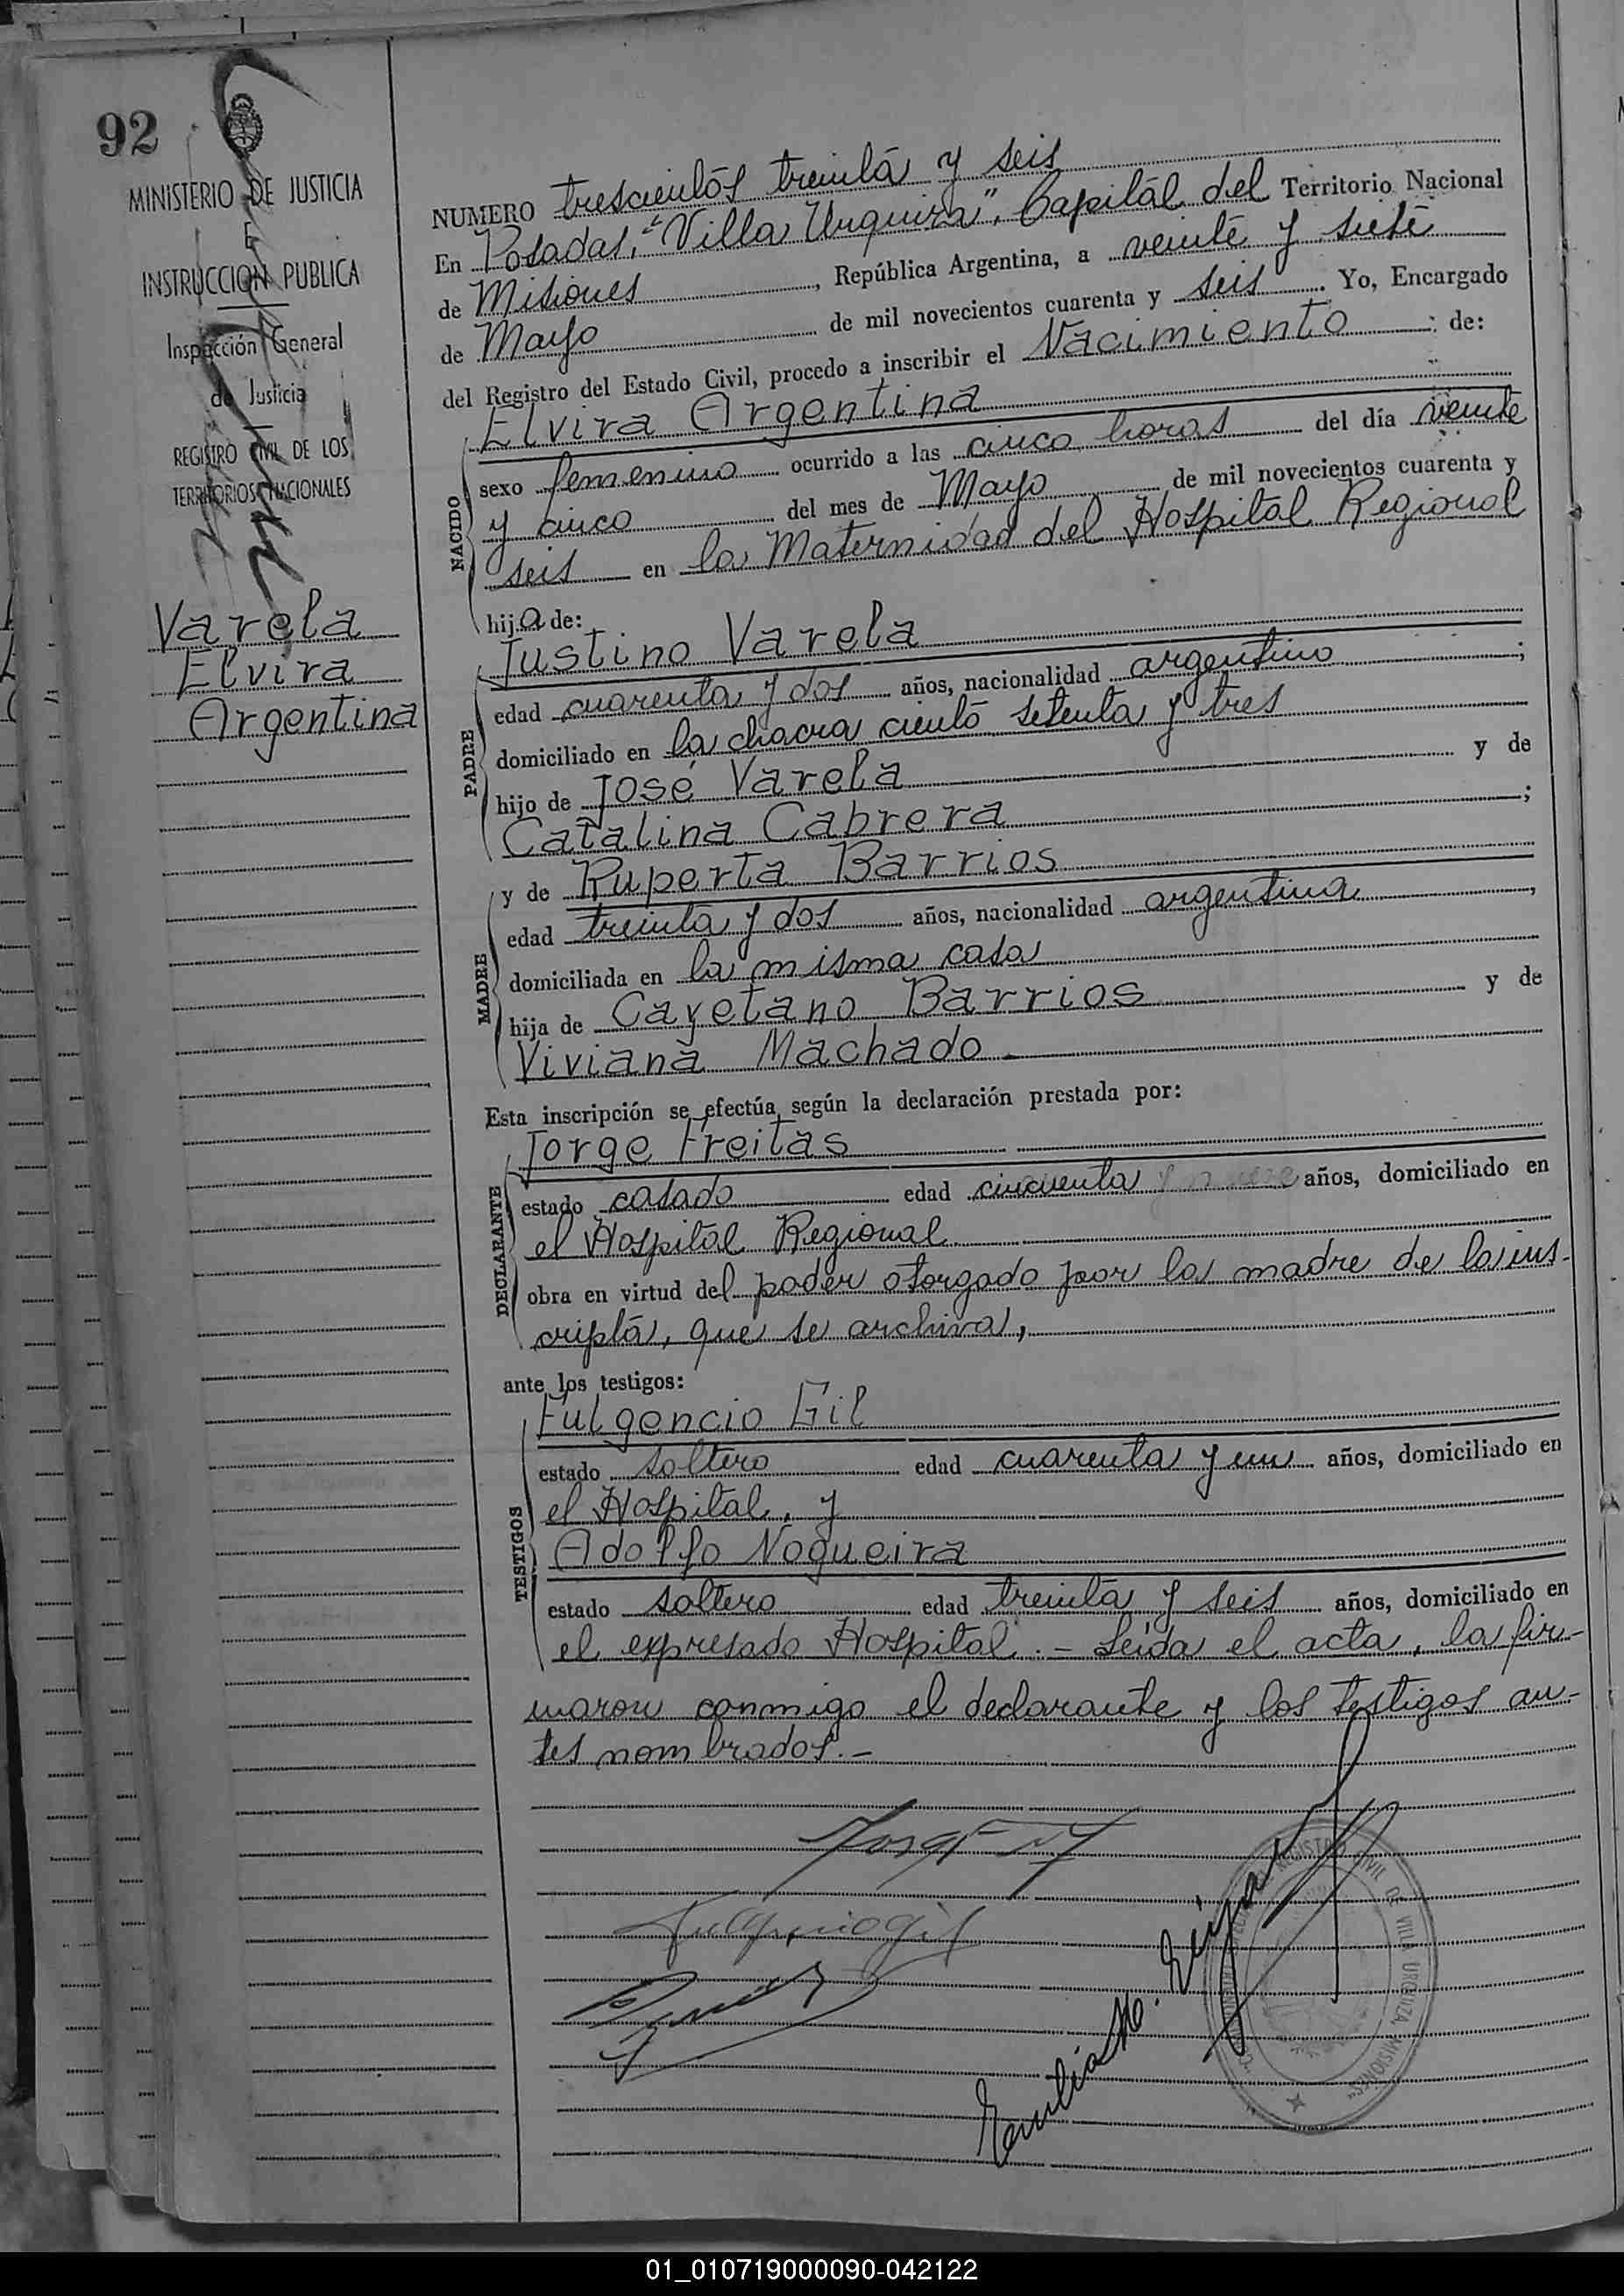 92
MINISTERIO DE JUSTICIA
E
INSTRUCCION PUBLICA
Inspección General
de Justicia
REGISTRO CIVIL DE LOS
TERRITORIOS NACIONALES
Varela
Elvira
Argentina
NUMERO trescientos treinta y seis
En Posadas, "Villa Urquiza", Capital del Territorio Nacional
de Misiones, República Argentina, a veinte y siete
de Mayo de mil novecientos cuarenta y seis. Yo, Encargado
del Registro del Estado Civil, procedo a inscribir el Nacimiento de:
NACIDO
Elvira Argentina
sexo femenino ocurrido a las cinco horas del día veinte
y cinco del mes de Mayo de mil novecientos cuarenta y
seis en la Maternidad del Hospital Regional
hija de:
PADRE
Justino Varela
edad cuarenta y dos años, nacionalidad argentino;
domiciliado en la chacra ciento setenta y tres
hijo de José Varela y de
Catalina Cabrera;
MADRE
y de Ruperta Barrios
edad treinta y dos años, nacionalidad argentina,
domiciliada en la misma casa
hija de Cayetano Barrios y de
Viviana Machado
Esta inscripción se efectúa según la declaración prestada por:
DECLARANTE
Jorge Freitas
estado casado edad cincuenta años, domiciliado en
el Hospital Regional
obra en virtud del poder otorgado por la madre de la ins-
cripta, que se archiva,
ante los testigos:
TESTIGOS
Fulgencio Gil
estado soltero edad cuarenta y un años, domiciliado en
el Hospital, y
Adolfo Nogueira
estado soltero edad treinta y seis años, domiciliado en
el expresado Hospital.- Leída el acta, la fir-
maron conmigo el declarante y los testigos an-
tes nombrados.-
Fulgencio Gil
Emilia M.
REGISTRO CIVIL DE VILLA URQUIZA, MISIONES
01_010719000090-042122